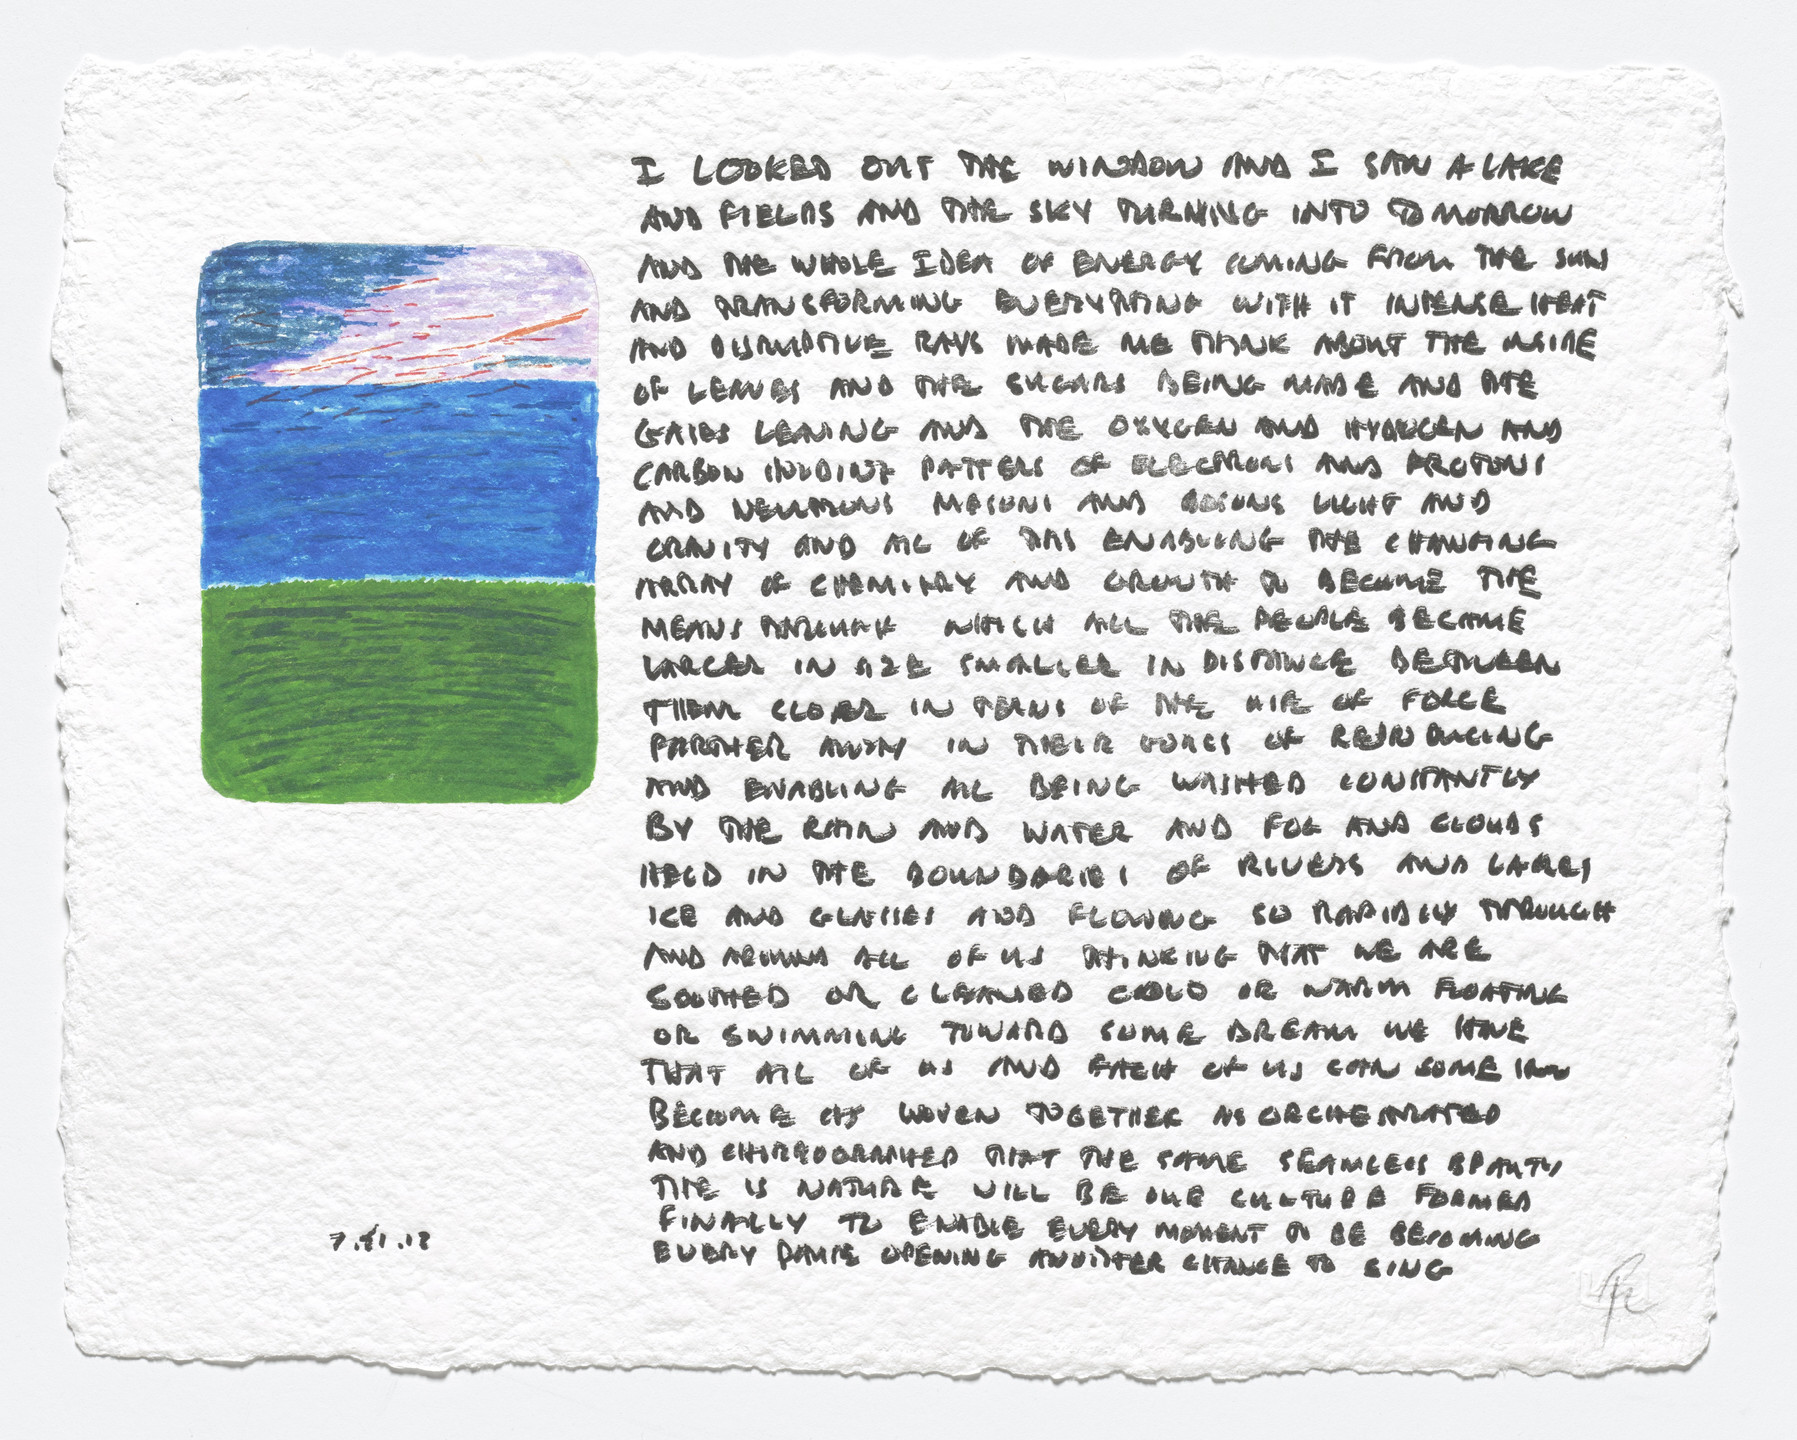 I LOOKED OUT THE WINDOW AND I SAW A LAKE
AND FIELDS AND THE SKY TURNING INTO TOMORROW
AND THE WHOLE IDEA OF ENERGY COMING FROM THE SUN
AND TRANSFORMING EVERYTHING WITH IT INTENSE HEAT
AND DISRUPTIVE RAYS MADE ME THINK ABOUT THE INSIDE
OF LEAVES AND THE SUGARS BEING MADE AND THE
GASES LEAVING AND THE OXYGEN AND HYDROGEN AND
CARBON PATTERS OF ELECTRONS AND PROTONS
AND NEUTRONS MESONS AND BOSONS LIGHT AND
GRAVITY AND ALL OF THIS ENABLING THE CHANGING
ARRAY OF CHEMISTRY AND GROWTH TO BECOME THE
MEANS THROUGH WHICH ALL THE PEOPLE BECAME
LARGER IN SIZE SMALLER IN DISTANCE BETWEEN
THEM CLOSER IN TERMS OF THE USE OF FORCE
FARTHER AWAY IN THEIR GOALS OF REPRODUCING
AND ENABLING ALL BEING WASHED CONSTANTLY
BY THE RAIN AND WATER AND FOG AND CLOUDS
HELD IN THE BOUNDARIES OF RIVERS AND LAKES
ICE AND GLASSES AND FLOWING SO RAPIDLY THROUGH
AND AROUND ALL OF US THINKING THAT WE ARE
SOOTHED OR CLEANSED COLD OR WARM FLOATING
OR SWIMMING TOWARD SOME DREAM WE HAVE
THAT ALL OF US AND EACH OF US CAN SOME
BECOME AS WOVEN TOGETHER AS ORCHESTRATED
AND THAT THE SAME SEAMLESS BEAUTY
THE IS NATURE WILL BE OUR CULTURE FORMED
FINALLY TO ENABLE EVERY MOMENT TO BE BECOMING
EVERY OPENING ANOTHER CHANCE TO SING